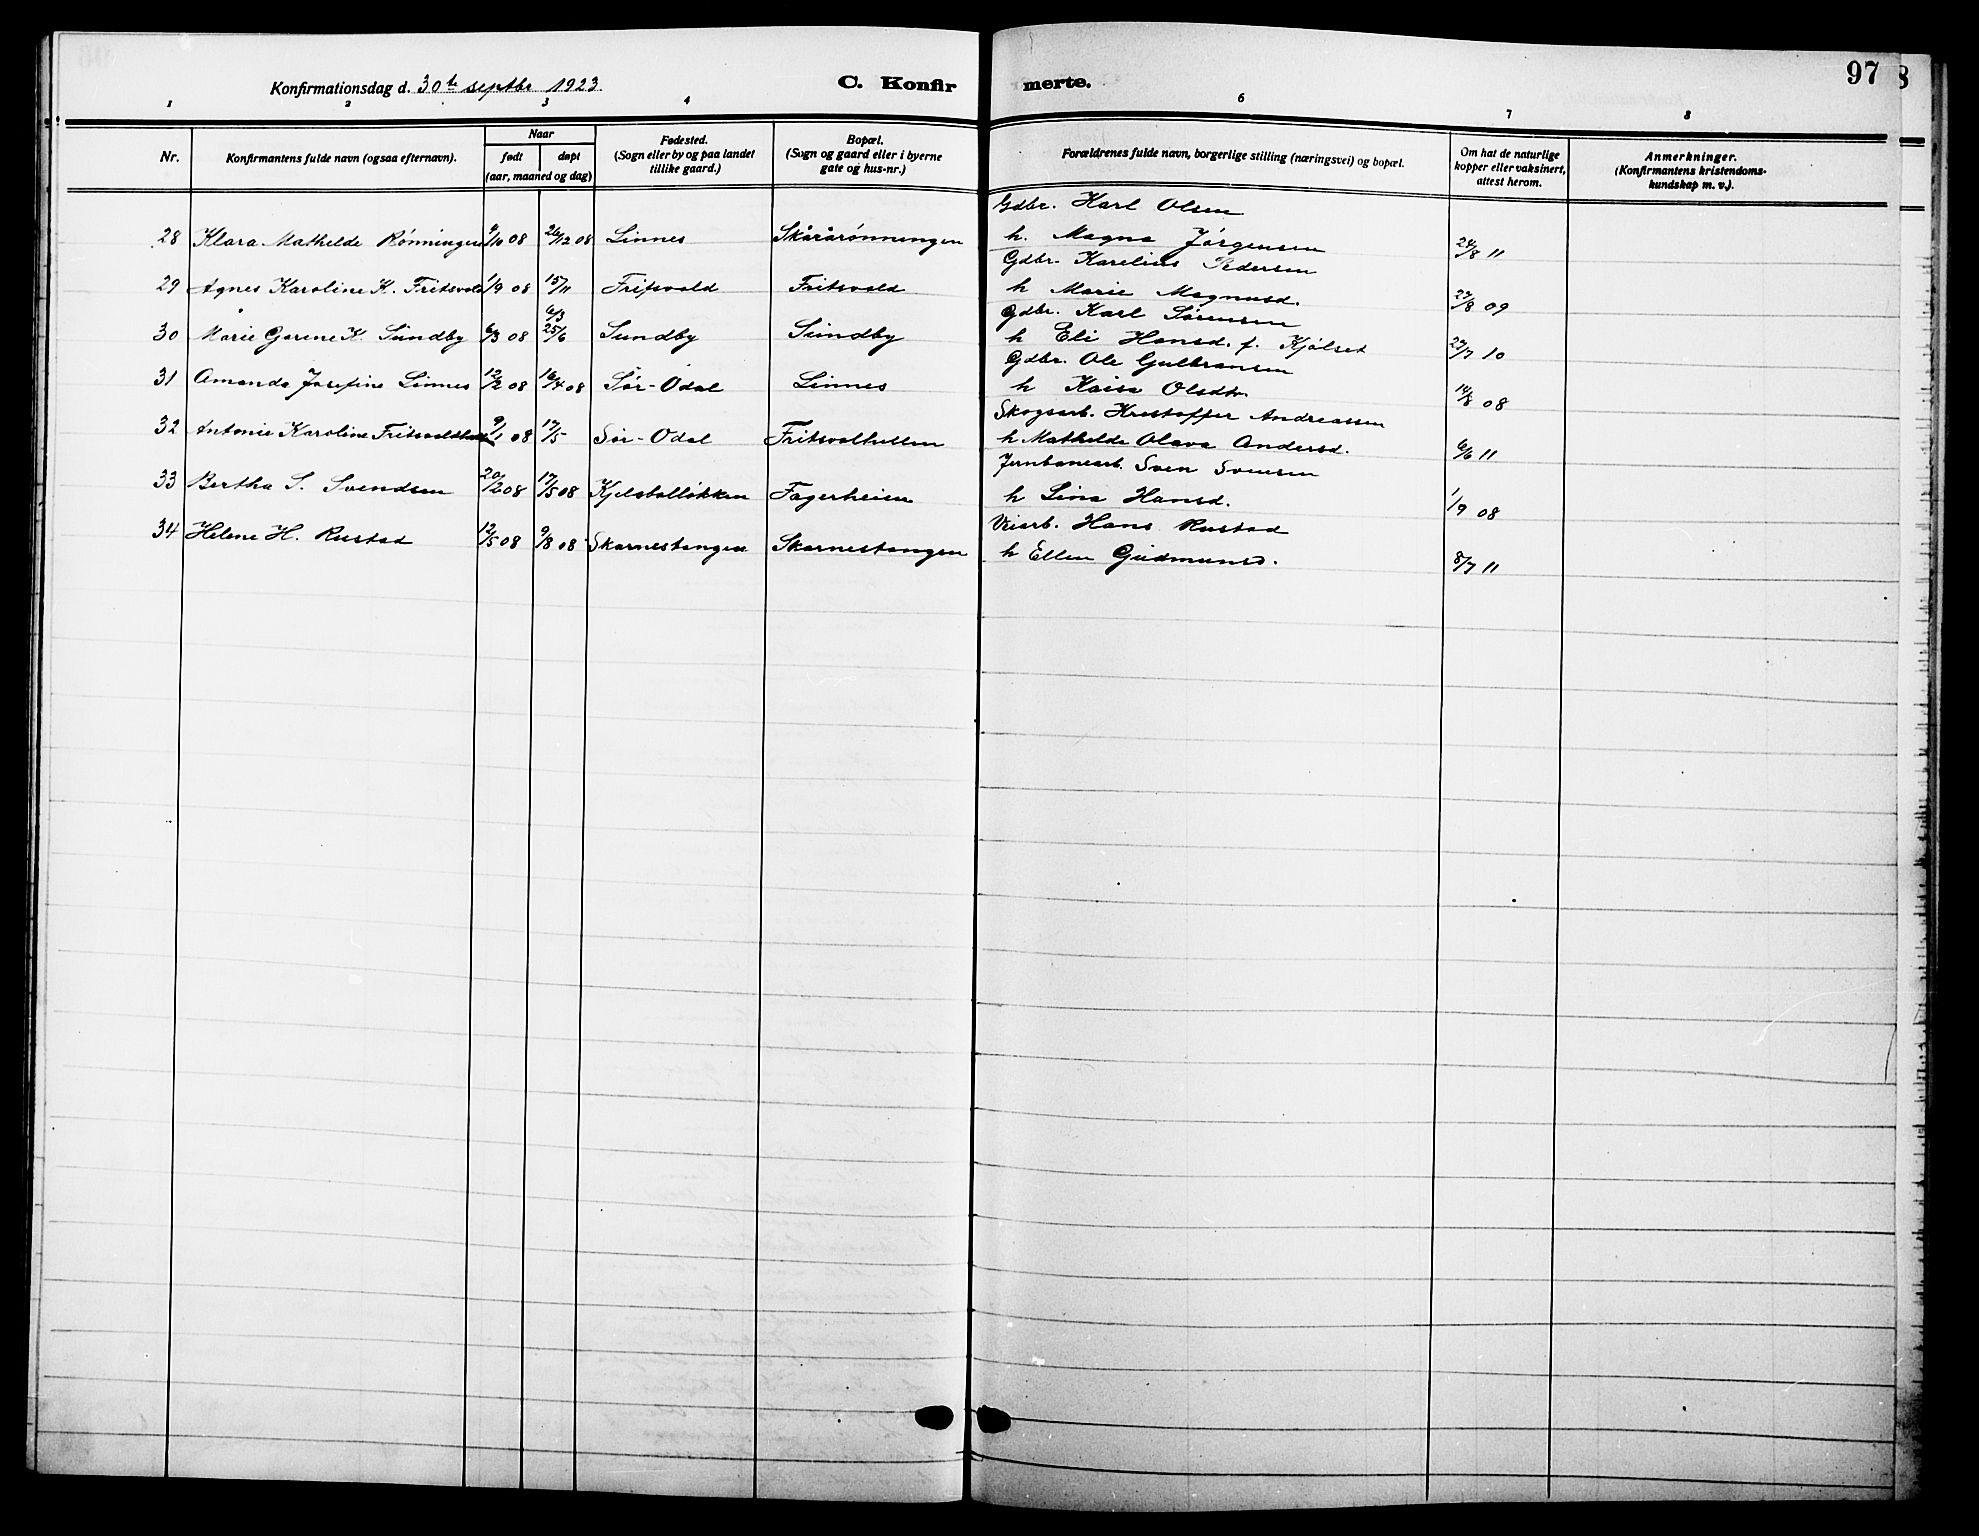 97
Konfirmationsdag d. 30te septbr 1923.
C. Konfirmerte.
1 2 3 4 6 7 8
Nr.
Konfirmantens fulde navn (ogsaa efternavn).
Naar
født døpt
(aar, maaned og dag)
Fødested.
(Sogn eller by og paa landet
tillike gaard.)
Bopæl.
(Sogn og gaard eller i byerne
gate og hus-nr.)
Forældrenes fulde navn, borgerlige stilling (næringsvei) og bopæl.
Om hat de naturlige
kopper eller vaksinert,
attest herom.
Anmerkninger.
(Konfirmantens kristendoms-
kundskap m. v.).
Gdbr. Karl Olsen
28 Klara Mathilde Rønningen 9/10 08 26/12 08 Linnes Skårårønningen h. Magna Jørgensen 24/8 11
Gdbr. Karelius Pedersen
29 Agnes Karoline K. Fritsvold 1/9 08 15/11 Fritsvold Fritsvold h Marie Magnusd. 27/8 09
6/3
Gdbr. Karl Sørensen
30 Marie Gorene K. Sundby 6/3 08 25/6 Sundby Sundby h Eli Hansd. f. Kjølset 27/7 10
Gdbr. Ole Gulbransen
31 Amanda Josefine Linnes 12/2 08 16/4 08 Sør-Odal Linnes h Kaisa Olsdtr. 14/8 08
Skogsarb. Kristoffer Andreassen
32 Antonie Karoline 9/1 08 17/5 Sør-Odal Fritsvolhusen h Mathilde Olava Andersd. 6/6 11
Jernbanearb. Sven Svensen
33 Bertha S. Svendsen 20/2 08 17/5 08 Fagerheim h Lina Hansd. 1/9 08
Veiarb. Hans Rustad
34 Helene H. Rustad 12/5 08 9/8 08 Skarnestangen Skarnestangen h Ellen Gudmunsd. 8/7 11